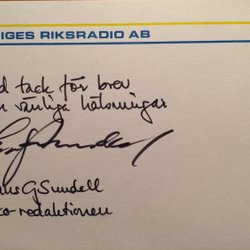 IGES RIKSRADIO AB
d tack för brev
vänliga hälsningar
GSundell
redaktionen